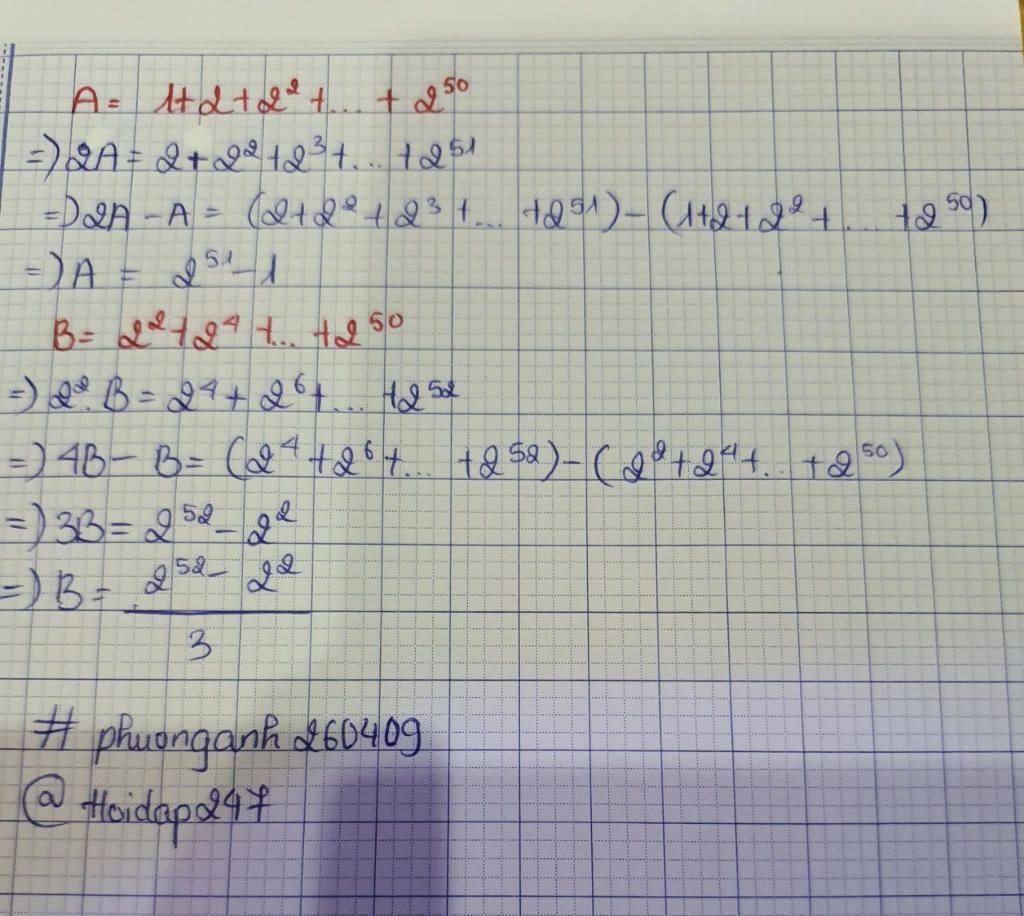 A = 1+2+2² +... + 2⁵⁰
=) 2A = 2 + 2² +2³ +... +2⁵¹
=) 2A - A = (2+2² + 2³ +... +2⁵¹) - (1+2+2² + ... +2⁵⁰)
=) A = 2⁵¹ - 1
B = 2² +2⁴ +... +2⁵⁰
=) 2². B = 2⁴ + 2⁶ +... +2⁵²
=) 4B - B = (2⁴ +2⁶ +... +2⁵²) - (2² +2⁴ +... +2⁵⁰)
=) 3B = 2⁵² - 2²
=) B = 2⁵² - 2²
3
# phuonganh260409
@ Hoidap247